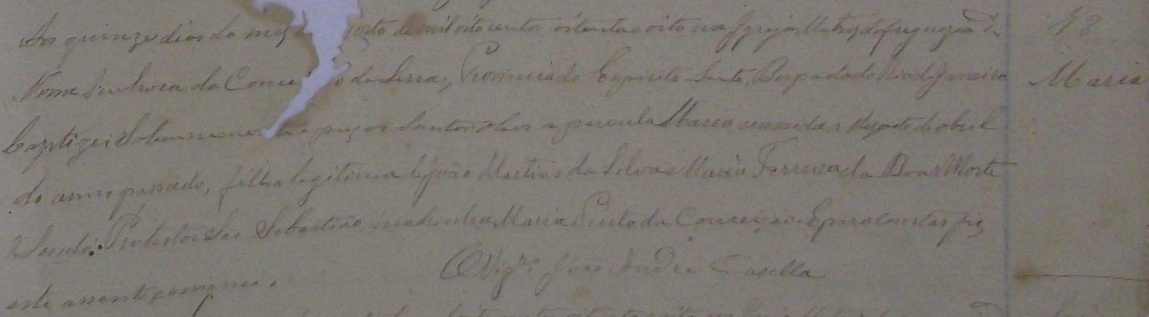 Aos quinze dias do mez osto de mil oito centos oitenta e oito na Igreja Matriz da freguezia de
Nossa Senhora da Conce o da Serra, Provincia do Espirito Santo, Bispado do Rio de Janeiro
baptizei Solemnemen e puz os Santos oleos a parvula Maria nascida a de abril
do anno passado, filha legitima de João Martins da Silva e Maria Ferreira da Boa Morte
Sendo: Protector São Sebastião madrinha Maria Pinto da Conceição. E para constar fiz
este assento que assignei.
O Vigrº José André Casella
12
Maria